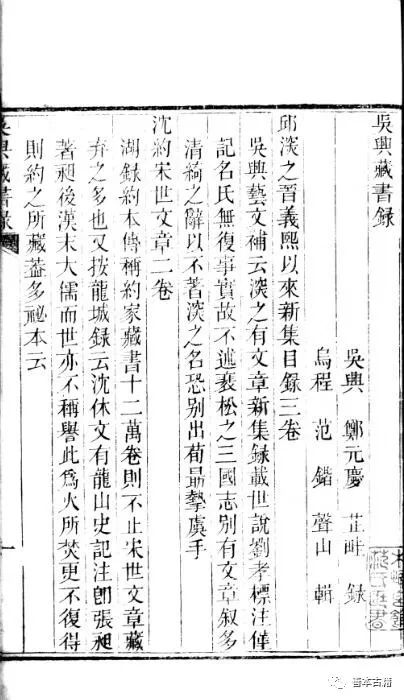 吳興藏書錄
吳興 鄭元慶 芷畦 錄
烏程 范鍇 聲山 輯
邱淡之晉義熙以來新集目錄三卷
吳興藝文補云淡之有文章新集錄載世說劉孝標注僅
記名氏無復事實故不述裴松之三國志別有文章叙多
清綺之辭以不著淡之名恐別出荀最摯虞手
沈約宋世文章二卷
湖錄約本傳稱約家藏書十二萬卷則不止宋世文章藏
弆之多也又按龍城錄云沈休文有龍山史記注卽張昶
著昶後漢末大儒而世亦不稱譽此爲火所焚更不復得
則約之所藏葢多祕本云
吳興藏書錄
一
善本古籍